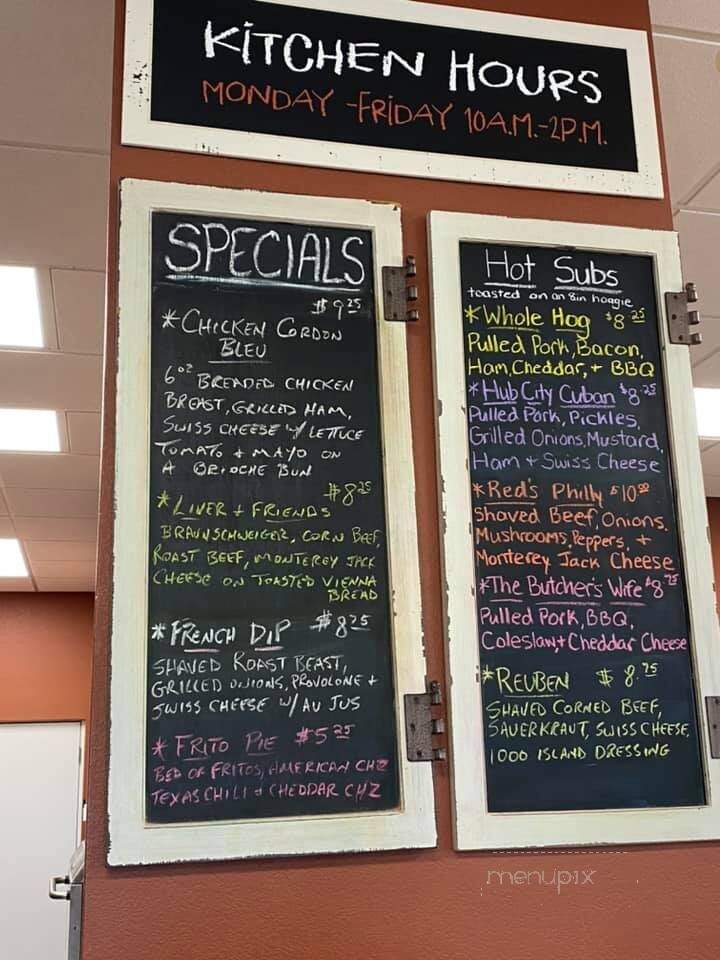 KiTCHEN HOURS
MONDAY-FRiDAY 10A.M.-2P.M.
SPECIALS
$9.25
*CHICKEN CORDON
BLEU
6oz BREADED CHICKEN
BREAST, GRILLED HAM,
SWISS CHEESE w/ LETTUCE
TOMATO + MAYO ON
A BRIOCHE BUN
$8.25
*LIVER + FRIENDS
BRAUNSCHWEIGER, CORN BEEF,
ROAST BEEF, MONTEREY JACK
CHEESE ON TOASTED VIENNA
BREAD
*FRENCH DIP $8.25
SHAVED ROAST BEAST,
GRILLED ONIONS, PROVOLONE +
SWISS CHEESE w/ AU JUS
*FRITO PIE $5.25
BED OF FRITOS, AMERICAN CHZ
TEXAS CHILI + CHEDDAR CHZ
Hot Subs
toasted on an 8in hoagie
*Whole Hog $8.25
Pulled Pork, Bacon,
Ham, Cheddar, + BBQ
*Hub City Cuban $8.25
Pulled Pork, Pickles,
Grilled Onions, Mustard,
Ham + Swiss Cheese
*Red's Philly $10.00
Shaved Beef, Onions,
Mushrooms, Peppers, +
Monterey Jack Cheese
*The Butcher's Wife $8.75
Pulled Pork, BBQ,
Coleslaw + Cheddar Cheese
*REUBEN $8.75
SHAVED CORNED BEEF,
SAUERKRAUT, SWISS CHEESE,
1000 ISLAND DRESSING
menupix